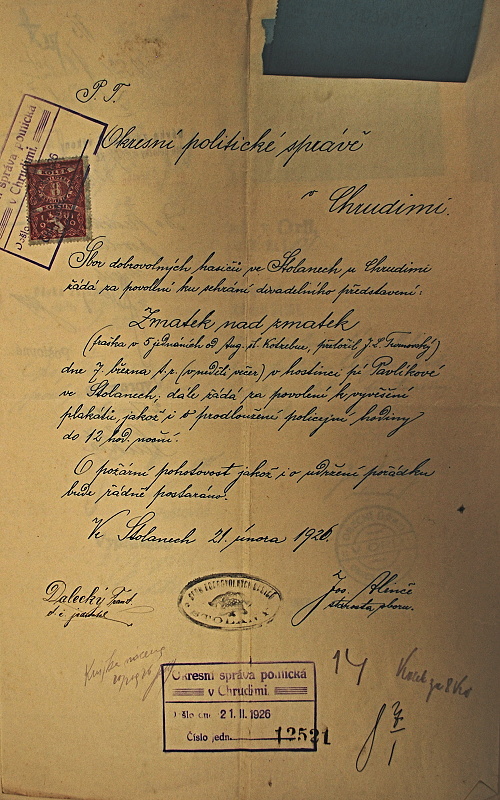 P. T.
Okresní politické správě
v Chrudimi.
Okresní správa politická
v Chrudimi.
Došlo
KOLEK
Sbor dobrovolných hasičů ve Stolanech u Chrudimi
žádá za povolení ku sehrání divadelního představení:
Zmatek nad zmatek
(fraška v 5 jednáních od Aug. st. Kotzebue, přeložil J. L. Turnovský)
dne 7. března t. r. (v neděli večer) v hostinci pí Pavlíkové
ve Stolanech; dále žádá za povolení k vyvěšení
plakátů, jakož i o prodloužení policejní hodiny
do 12 hod. noční.
O požární pohotovost jakož i o udržení pořádku
bude řádně postaráno.
Ve Stolanech 21. února 1926.
Dalecký Frant.
t. č. jednatel
SBOR DOBROVOLNÝCH HASIČŮ
STOLANY
Jos. Alinče
starosta sboru.
14
Okresní správa politická
v Chrudimi.
Došlo dne 21. II. 1926
Číslo jedn. 12521